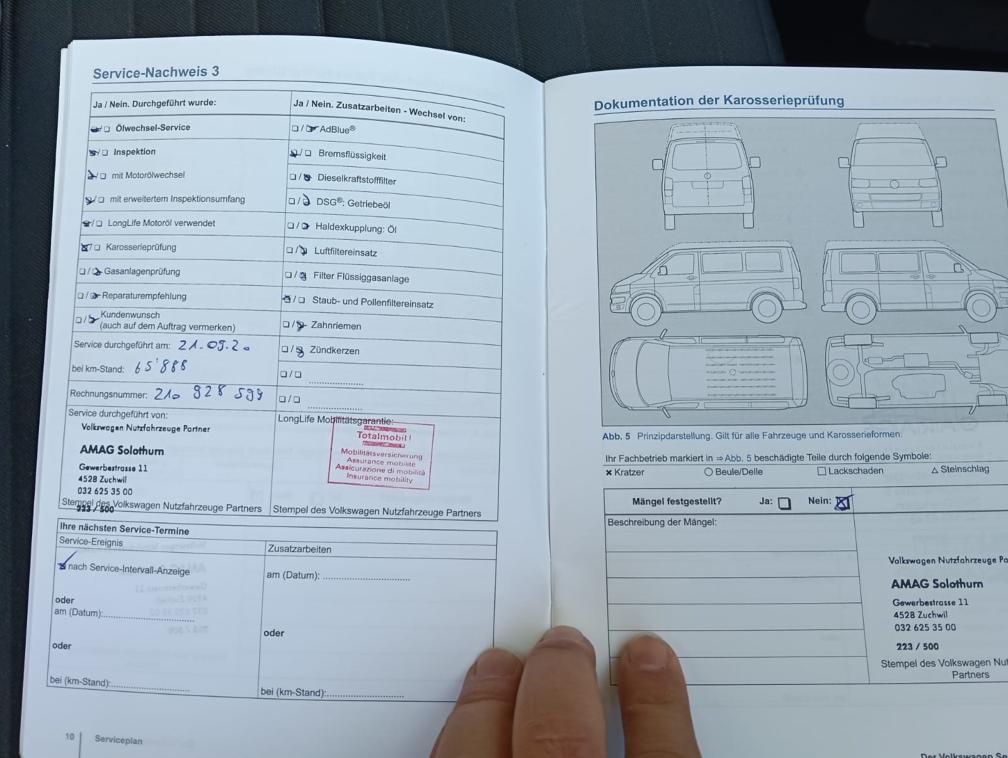 Service-Nachweis 3
Ja / Nein. Durchgeführt wurde:
Ölwechsel-Service
Inspektion
mit Motorölwechsel
mit erweitertem Inspektionsumfang
LongLife Motoröl verwendet
Karosserieprüfung
Gasanlagenprüfung
Reparaturempfehlung
Kundenwunsch
(auch auf dem Auftrag vermerken)
Service durchgeführt am: 21.09.20
bei km-Stand: 65'888
Rechnungsnummer: 210 928 599
Ja / Nein. Zusatzarbeiten - Wechsel von:
AdBlue®
Bremsflüssigkeit
Dieselkraftstofffilter
DSG®: Getriebeöl
Haldexkupplung: Öl
Luftfiltereinsatz
Filter Flüssiggasanlage
Staub- und Pollenfiltereinsatz
Zahnriemen
Zündkerzen
Service durchgeführt von:
Volkswagen Nutzfahrzeuge Partner
AMAG Solothurn
Gewerbestrasse 11
4528 Zuchwil
032 625 35 00
223 / 500
Stempel des Volkswagen Nutzfahrzeuge Partners
LongLife Mobilitätsgarantie:
Totalmobil!
Mobilitätsversicherung
Assurance mobilité
Assicurazione di mobilità
Insurance mobility
Stempel des Volkswagen Nutzfahrzeuge Partners
Ihre nächsten Service-Termine
Service-Ereignis
nach Service-Intervall-Anzeige
oder
am (Datum):
oder
bei (km-Stand):
Zusatzarbeiten
am (Datum):
oder
bei (km-Stand):
10 Serviceplan
Dokumentation der Karosserieprüfung
Abb. 5 Prinzipdarstellung. Gilt für alle Fahrzeuge und Karosserieformen.
Ihr Fachbetrieb markiert in ⇒Abb. 5 beschädigte Teile durch folgende Symbole:
× Kratzer ○ Beule/Delle □ Lackschaden △ Steinschlag
Mängel festgestellt? Ja: Nein:
Beschreibung der Mängel:
Volkswagen Nutzfahrzeuge Pa
AMAG Solothurn
Gewerbestrasse 11
4528 Zuchwil
032 625 35 00
223 / 500
Stempel des Volkswagen Nut
Partners
Der Volkswagen Se